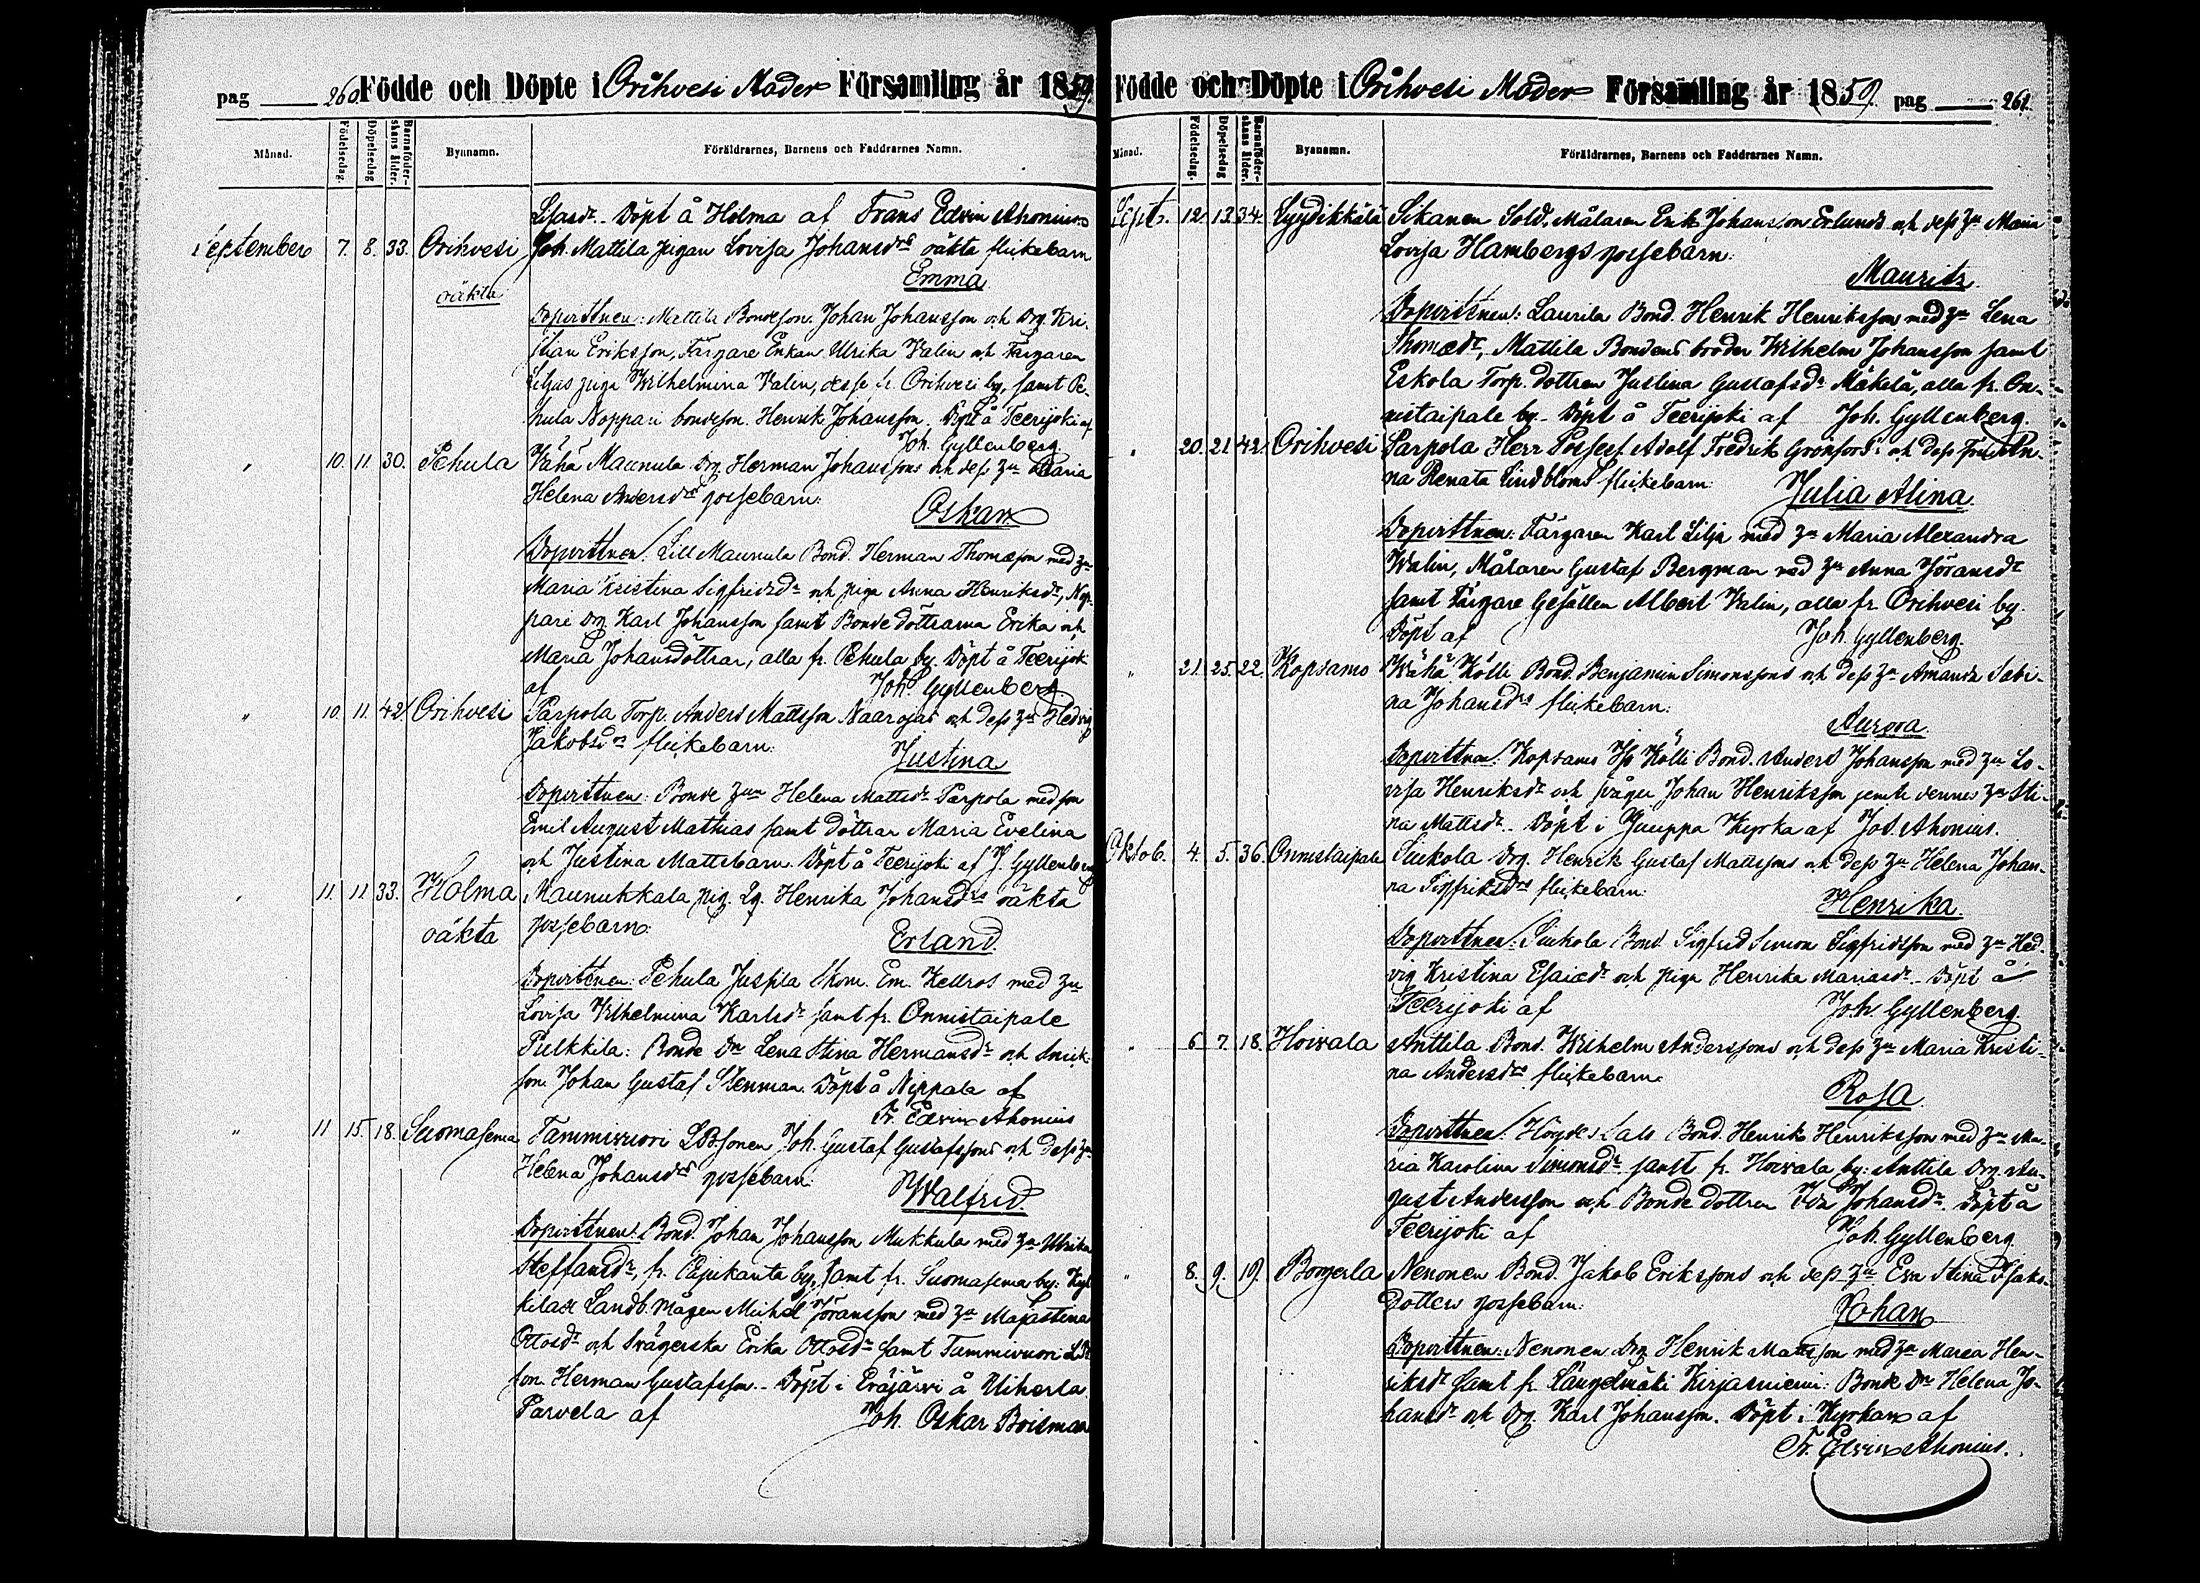 pag 260. Födde och Döpte i Orihvesi Moder Församling år 1859.
Månad. Födelsedag. Döpelsedag Barnaföderskans ålder. Bynamn. Föräldrarnes, Barnens och Faddrarnes Namn.
Esasdr. Döpt å Holma af Frans Edvin Ahonius
September 7. 8. 33. Orihvesi Joh. Mattila pigan Lovisa Johansdrs oäkta flickebarn
oäkta Emma
Dopvittnen: Mattila Bondeson Johan Johansson och Drg. Kri-
stian Eriksson, Färgare Enkan Ulrika Valin och Färgaren
Liljas piga Wilhelmina Valin, desse fr. Orihvesi by, samt Pe-
hula Noppari bondeson Henrik Johansson. Döpt å Teerijoki af
Joh. Gyllenberg
" 10. 11 30. Pehula Vähä Maunula Drg. Herman Johanssons och dess hu Maria
Helena Andersdrs gossebarn:
Oskar
Dopvittnen: Lill Maunula Bond. Herman Thomasson med hu
Maria Kristina Sigfridsdr och piga Anna Henriksdr, Nop-
pari Drg Karl Johansson samt Bonde döttrarna Erika och
Maria Johansdöttrar, alla fr. Pehula by. Döpt å Teerijoki
af Joh. Gyllenberg.
" 10. 11. 42 Orihvesi Parpola Torp. Anders Mattsson Naarojas och dess hu Hedvig
Jakobsdrs flickebarn:
Justina
Dopvittnen: Bonde hun Helena Mattsdr Parpola med son
Emil August Mathias samt döttrar Maria Evelina
och Justina Mattsbarn. Döpt å Teerijoki af J. Gyllenberg
" 11. 11 33. Holma Maunukkala pig. Henrika Johansdrs oäkta
oäkta gossebarn:
Erland.
Dopvittnen: Pehula Jussila Skom. Em. Kellros med hu
Lovisa Vilhelmina Karlsdr samt fr. Onnistaipale
Pulkkila: Bonde Dr Lena Stina Hermansdr och
son Johan Gustaf Stenman. Döpt å Nippala af
Fr. Edvin Ahonius
" 11 15. 18. Suomasema Tammivuori Joh. Gustaf Gustafssons och dess hu
Helena Johansdrs gossebarn:
Walfrid.
Dopvittnen: Bond. Johan Johansson Mukkula med hu Ulrika
Steffansdr, fr. by, samt fr. Suomasema by:
Landb. mågen Michel Jöransson med hu Majastina
Ottosdr och Svägerska Erika Ottosdr samt Tammivuori
son Herman Gustafsson. Döpt i Eräjärvi å Uiherla
Parvela af Joh. Oskar Boisman
Födde och Döpte i Orihvesi Moder Församling år 1859. pag 261.
Månad. Födelsedag. Döpelsedag Barnaföderskans ålder. Bynamn. Föräldrarnes, Barnens och Faddrarnes Namn.
Sept. 12. 13. 34. Syydikkälä Sikanen Sold. Målaren Erik Johansson Erlunds och dess hu Maria
Lovisa Hambergs gossebarn:
Mauritz.
Dopvittnen: Laurila Bond. Henrik Henriksson med hu Lena
Thomædr, Mattila Bondens broder Wilhelm Johansson samt
Eskola Torp. dottren Justina Gustafsdr Mäkelä, alla fr. On-
nistaipale by. Döpt å Teerijoki af Joh. Gyllenberg.
" 20. 21. 42. Orihvesi Parpola Herr Possess. Adolf Fredrik Grönfors och dess Fru An-
na Renata Lindbloms flickebarn:
Julia Alina
Dopvittnen: Färgaren Karl Lilja med hu Maria Alexandra
Walin, Målaren Gustaf Bergman med hu Anna Jöransdr
samt Färgare Gesällen Albert Valin, alla fr. Orihvesi by.
Döpt af Joh. Gyllenberg.
" 21. 25. 22. Kopsamo Wähä Kölli Bond. Benjamin Simonssons och dess hu Amanda Sabi-
na Johansdrs flickebarn:
Aurora.
Dopvittnen: Kopsamo Iso Kölli Bond. Anders Johansson med hu Lo-
visa Henriksdr och svåger Johan Henriksson jemte dennes hu Sti-
na Mattsdr. Döpt i Juuppa Kyrka af Jos. Ahonius.
Oktob. 4. 5. 36. Onnistaipale Suikola Drg. Henrik Gustaf Mattssons och dess hu Helena Johan-
na Sigfridsdrs flickebarn:
Henrika.
Dopvittnen: Suikola Bond. Sigfrid Simon Sigfridsson med hu Hed-
vig Kristina Esaiædr och piga Henrika Mariasdr. Döpt å
Teerijoki af Joh. Gyllenberg.
" 6. 7. 18. Hoivala Anttila Bond. Wilhelm Anderssons och dess hu Maria Kristi-
na Andersdrs flickebarn:
Rosa.
Dopvittnen: Lals Bond. Henrik Henriksson med hu Ma-
ria Karolina Simonsdr samt fr. Hoivala by: Anttila Drg. Au-
gust Andersson och Bonde dottren Ida Johansdr. Döpt å
Teerijoki af Joh. Gyllenberg
" 8. 9. 19. Bonjerla Nenonen Bond. Jakob Erikssons och dess hu Eva Stina Isaks-
dotters gossebarn:
Johan
Dopvittnen: Nenonen Drg Henrik Mattsson med hu Maria Hen-
riksdr samt fr. Längelmäki Kirjasniemi: Bonde Dr Helena Jo-
hansdr och Drg. Karl Johansson. Döpt i Kyrkan af
Fr. Edvin Ahonius.